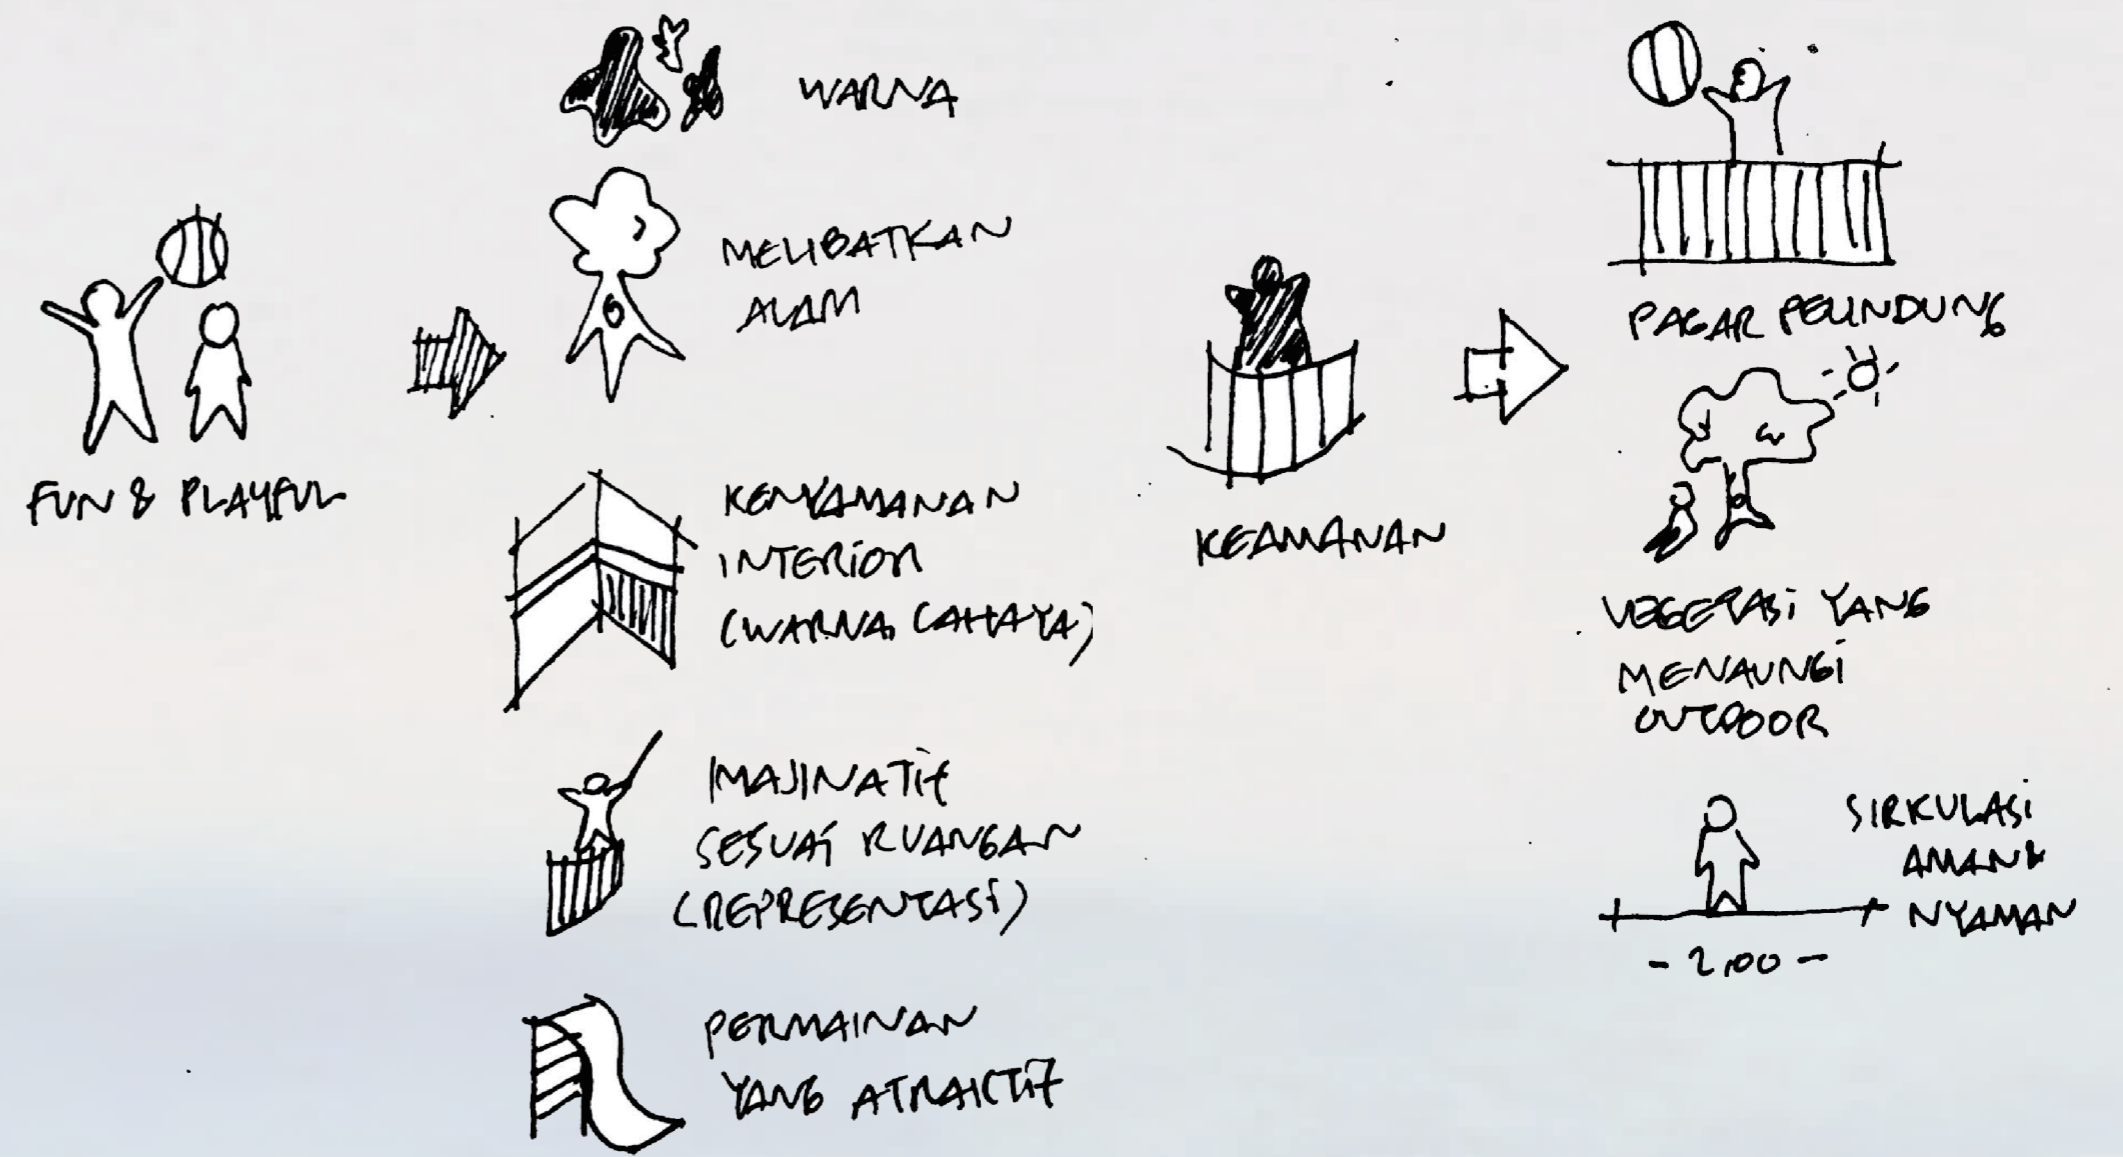 FUN & PLAYFUL
WARNA
MELIBATKAN
ALAM
KENYAMANAN
INTERIOR
(WARNA, CAHAYA)
IMAJINATIF
SESUAI RUANGAN
(REPRESENTASI)
PERMAINAN
YANG ATRAKTIF
KEAMANAN
PAGAR PELINDUNG
VEGETASI YANG
MENAUNGI
OUTDOOR
SIRKULASI
AMAN &
NYAMAN
- 2,00 -